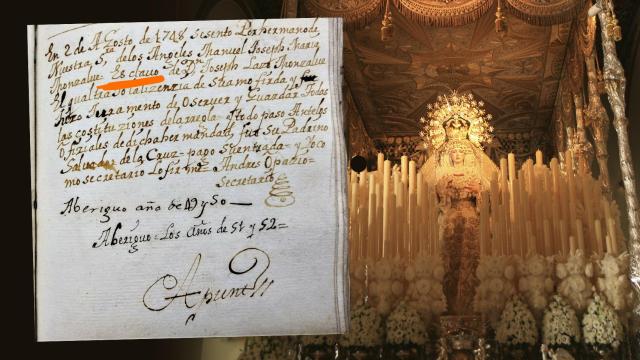 En 2 de Agosto de 1748 se sento Por hermano de
Nuestra S.ra de los Angeles Manuel Joseph Maria
Gonzalez Esclavo de D.n Joseph Lazo Gonzalez
el qual trajo la lizenzia de su amo firmada y
hizo Juramento de oserver y Guardar Todos
las costituziones de la regla = y todo paso Ante los
ofiziales de dicha hermandad, fue Su Padrino
Salvador de la Cruz = pago Su entrada = y Yo co
mo secretario Lo firme = Andres Opazio =
Secretario
Aberiguo año de 49 y 50 =
Aberiguo = Los Años de 51 y 52 =